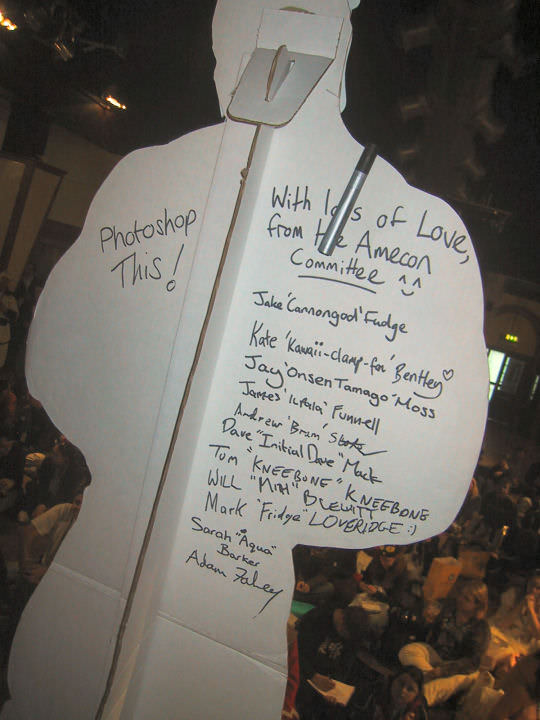 Photoshop
This!
With lots of Love,
from the Amecon
Committee ^_^
Jake 'Cannongod' Fudge
Kate 'Kawaii-clamp-fan' Bentley ♡
Jay 'Onsen Tamago' Moss
James Funnell
Andrew 'Bram'
Dave "Initial Dave" Mack
Tom "KNEEBONE" KNEEBONE
WILL BLEWITT
Mark "Fridge" LOVERIDGE :)
Sarah "Aqua"
Barker
Adam